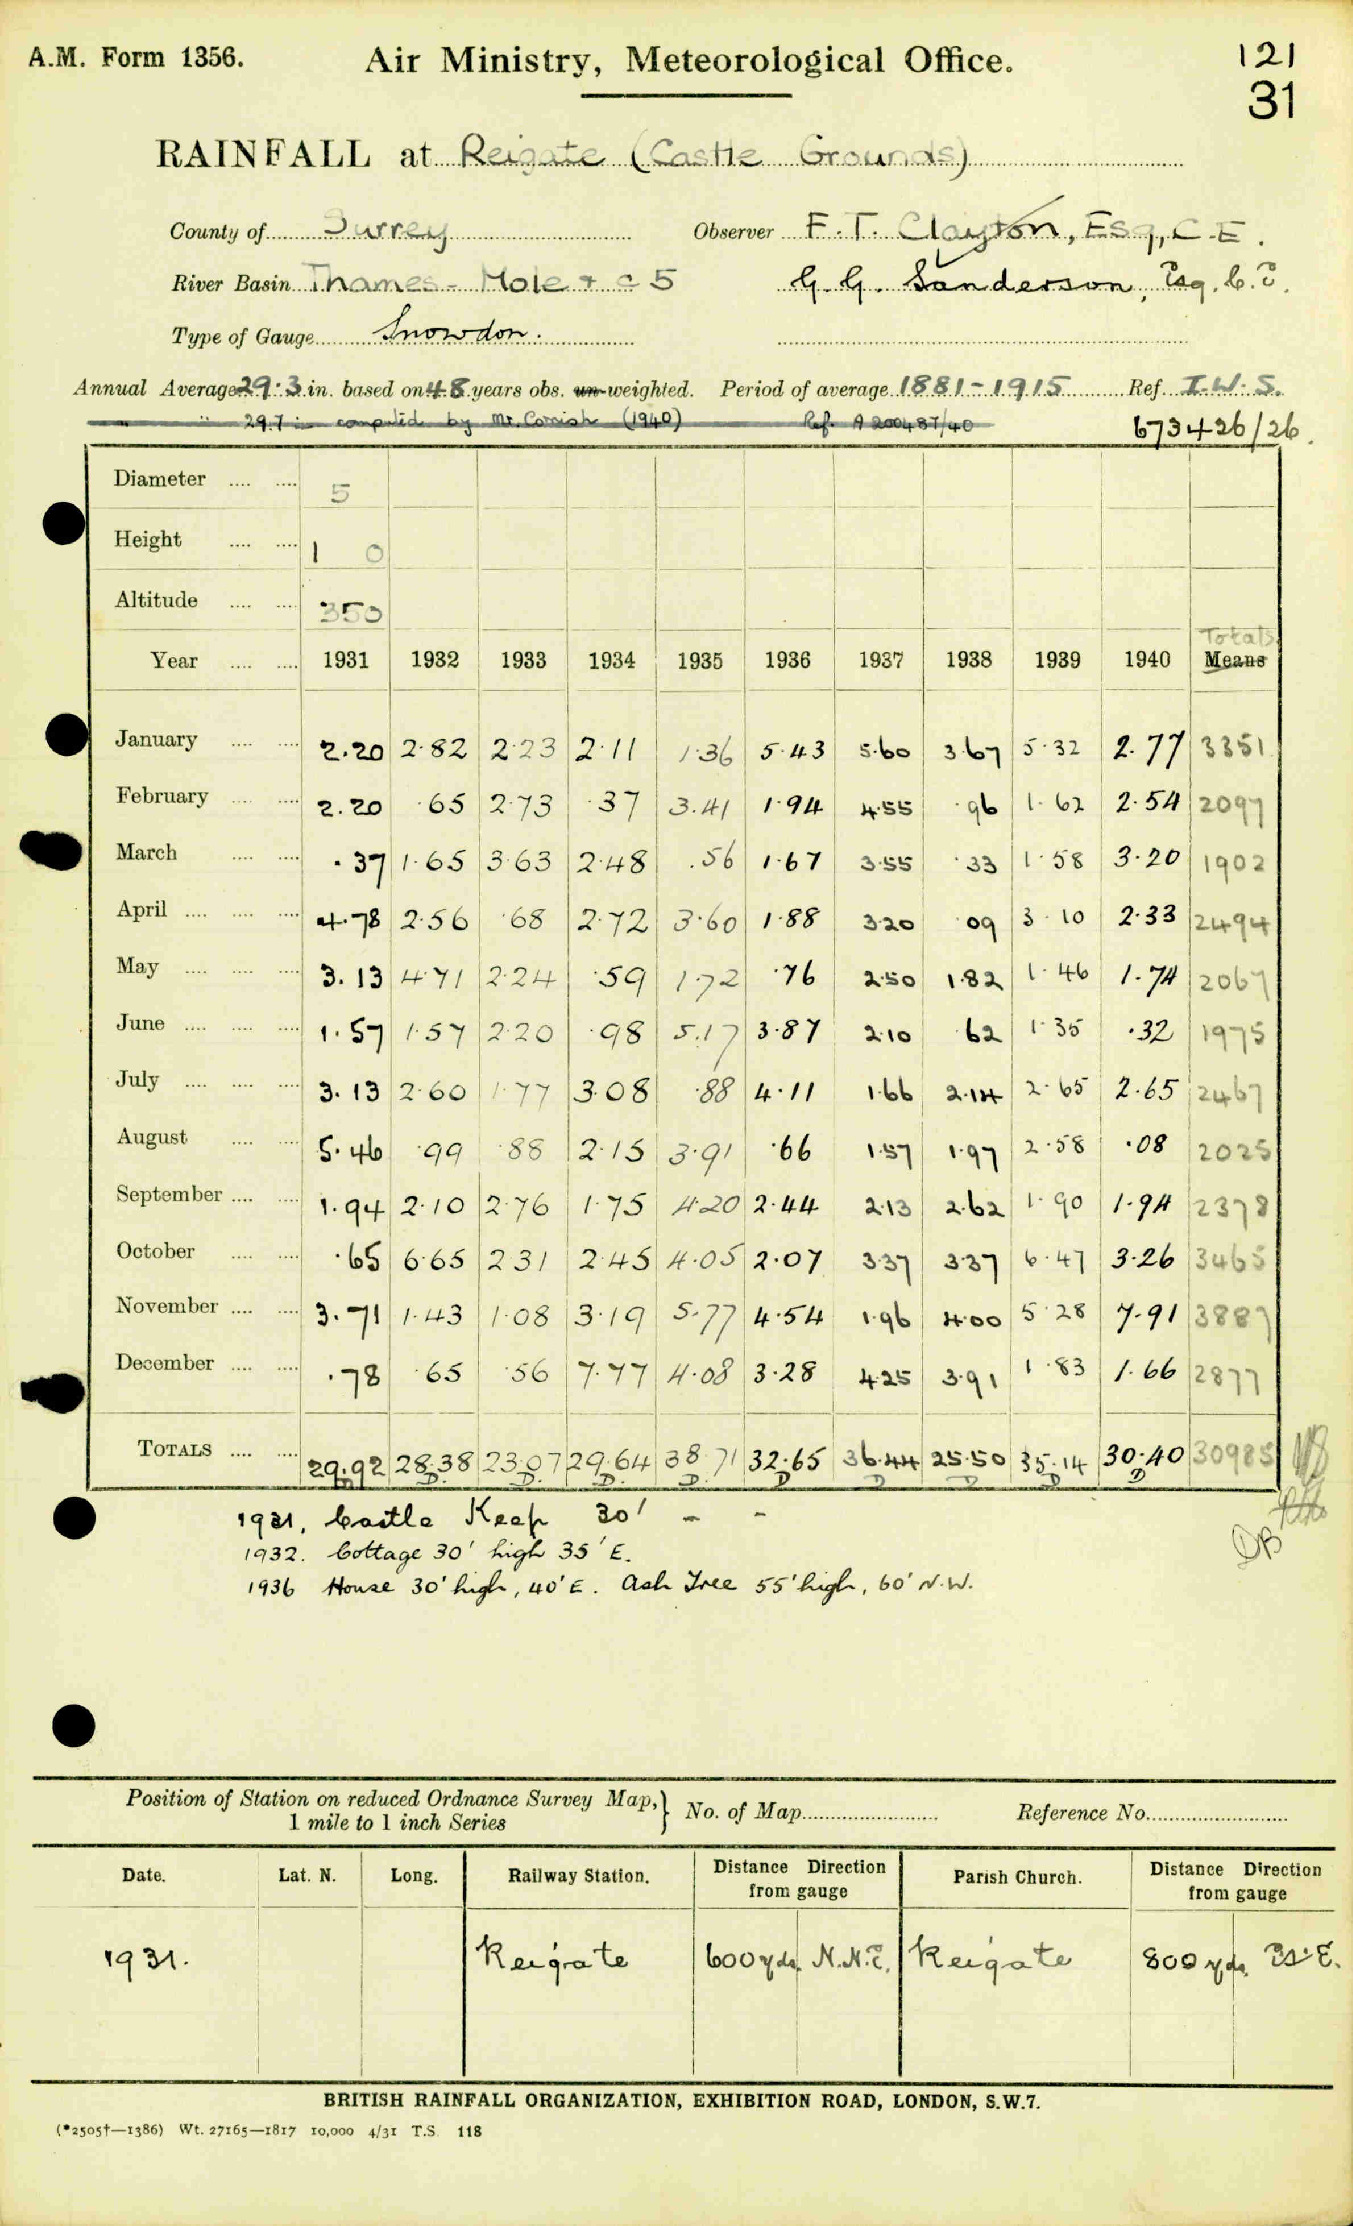 A.M. Form 1356. Air Ministry, Meteorological Office. 121
31
RAINFALL at Reigate (Castle Grounds)
County of Surrey Observer F. T. Clayton, Esq, C.E.
River Basin Thames - Mole + c 5 G. G. Sanderson, Esq. C.E.
Type of Gauge Snowdon.
Annual Average 29.3 in. based on 48 years obs. un-weighted. Period of average 1881-1915 Ref. I.W.S.
" " 29.7 in compiled by Mr. Cornish (1940) Ref. A 200487/40 673426/26.
Diameter .... .... 5
Height .... .... 1 0
Altitude .... .... 350
Totals
Year .... .... 1931 1932 1933 1934 1935 1936 1937 1938 1939 1940 Means
January .... .... 2.20 2.82 2.23 2.11 1.36 5.43 5.60 3.67 5.32 2.77 3351
February .... .... 2.20 .65 2.73 .37 3.41 1.94 4.55 .96 1.62 2.54 2097
March .... .... .37 1.65 3.63 2.48 .56 1.67 3.55 .33 1.58 3.20 1902
April .... .... .... 4.78 2.56 .68 2.72 3.60 1.88 3.20 09 3.10 2.33 2494
May .... .... .... 3.13 4.71 2.24 .59 1.72 .76 2.50 1.82 1.46 1.74 2067
June .... .... .... 1.57 1.57 2.20 .98 5.17 3.87 2.10 .62 1.35 .32 1975
July .... .... .... 3.13 2.60 1.77 3.08 .88 4.11 1.66 2.14 2.65 2.65 2467
August .... .... 5.46 .99 .88 2.15 3.91 .66 1.57 1.97 2.58 .08 2025
September .... .... 1.94 2.10 2.76 1.75 4.20 2.44 2.13 2.62 1.90 1.94 2378
October .... .... .65 6.65 2.31 2.45 4.05 2.07 3.37 3.37 6.47 3.26 3465
November .... .... 3.71 1.43 1.08 3.19 5.77 4.54 1.96 4.00 5.28 7.91 3887
December .... .... .78 .65 .56 7.77 4.08 3.28 4.25 3.91 1.83 1.66 2877
TOTALS .... .... 29.92 28.38 23.07 29.64 38.71 32.65 36.44 25.50 35.14 30.40 30985
D. D. D. D. D. D D D D D
1931. Castle Keep 30' - -
1932. Cottage 30' high 35' E.
1936 House 30' high, 40' E. Ash Tree 55' high, 60' N.W.
DB
Position of Station on reduced Ordnance Survey Map,} No. of Map Reference No.
1 mile to 1 inch Series
Date. Lat. N. Long. Railway Station. Distance Direction from gauge Parish Church. Distance Direction from gauge
1931. Reigate 600 yds. N.N.E. Reigate 800 yds. E.
BRITISH RAINFALL ORGANIZATION, EXHIBITION ROAD, LONDON, S.W.7.
(*2505†—1386) Wt. 27165—1817 10,000 4/31 T.S. 118